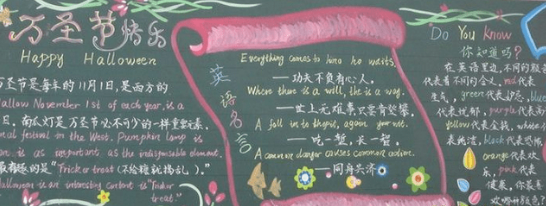 万圣节快乐
Happy Halloween
圣节是每年的11月1日,是西方的
Hallow November 1st of each year, is a
日,南瓜灯是万圣节必不可少的一样重要元素,
nal festival in the West. Pumpkin lamp is
is as important as the indispensable element.
最有趣的是"Trick or treat(不给糖就捣乱)."
Halloween is an interesting content is "Trick or
treat."
英语名言
Everything comes to him who waits.
——功夫不负有心人。
Where there is a will, there is a way.
——世上无难事只要肯登攀。
A fall into the pit, a gain in your wit.
——吃一堑,长一智。
A common danger causes common action.
——同舟共济
Do You Know
你知道吗?
在英语里边,不同的颜色
代表着不同的含义,red代表
生气,green代表
代表忧郁,purple代表高
yellow代表 white代
表纯洁,black代表
orange代表欢
乐,pink代表
健康,你最喜
欢哪种颜色?